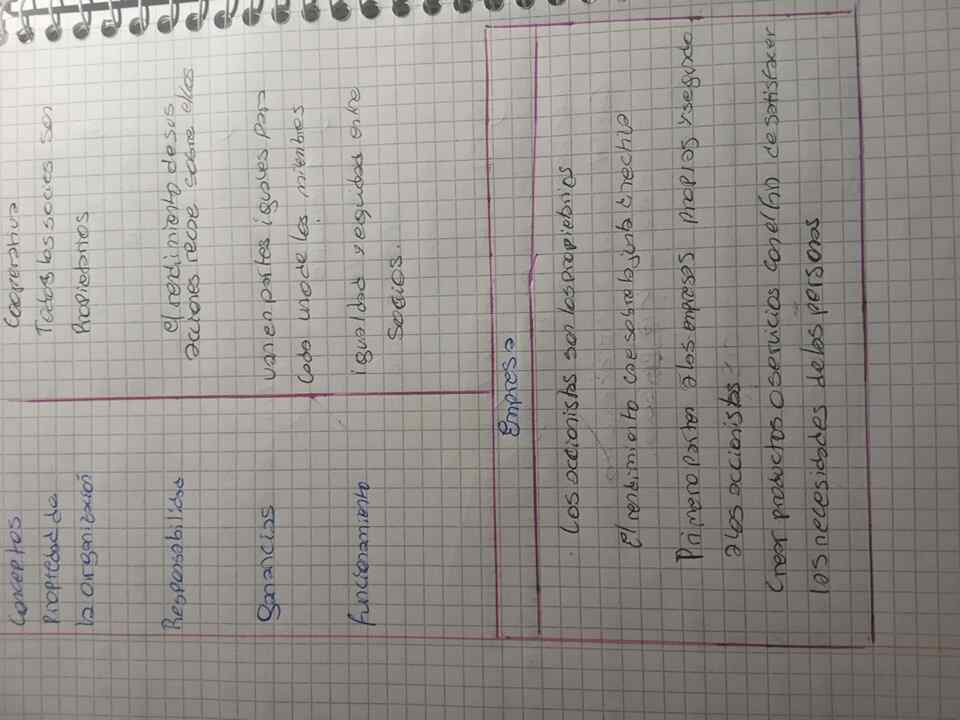 Conceptos
Cooperativa
Propiedad de
la organización
Todos los socios son
Propietarios
Responsabilidad
el rendimiento de sus
acciones recae sobre ellos
Ganancias
van en partes iguales para
cada uno de los miembros
funcionamiento
igualdad y equidad entre
socios.
Empresa
Los accionistas son los propietarios
El rendimiento cae sobre la junta directiva
Primero parten a las empresas propias y seguido
a los accionistas
Crear productos o servicios con el fin de satisfacer
las necesidades de las personas